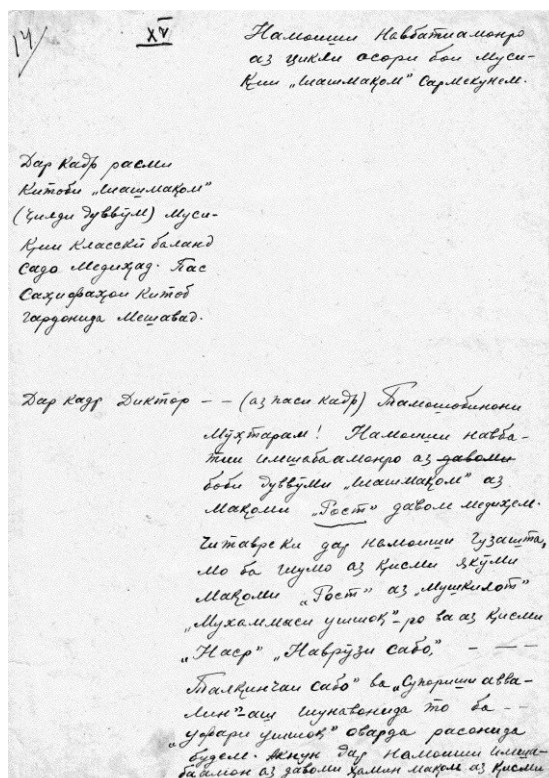 14/
XV
Намоиши Навбатиамонро
аз цикли осори бои Муси-
қии „Шашмақом" Сармекунем.
Дар Кадр расми
Китоби „Шашмақом"
(Ҷилди дуввӯм) Муси-
қии Классикӣ баланд
садо Медиҳад. Пас
Саҳифаҳои Китоб
гардонида Мешавад.
Дар кадр Диктор – – (аз паси кадр) Тамошобинони
Мӯҳтарам! Намоиши навба-
тии имшабаамонро аз давоми
боби дуввӯми „Шашмақом" аз
Мақоми „Рост" давом медиҳем.
Читавреки дар намоиши гузашта,
мо ба шумо аз қисми якӯми
Мақоми „Рост" аз „Мушкилот"
„Мухаммаси ушшоқ"-ро ва аз қисми
„Наср" „Наврӯзи сабо", – – –
Талқинчаи сабо" ва „Супориши авва-
лин"-аш шунавонида то ба – –
„уфари ушшоқ" оварда расонида
будем. Акнун дар намоиши имша-
баамон аз давоми ҳамин мақом аз қисми